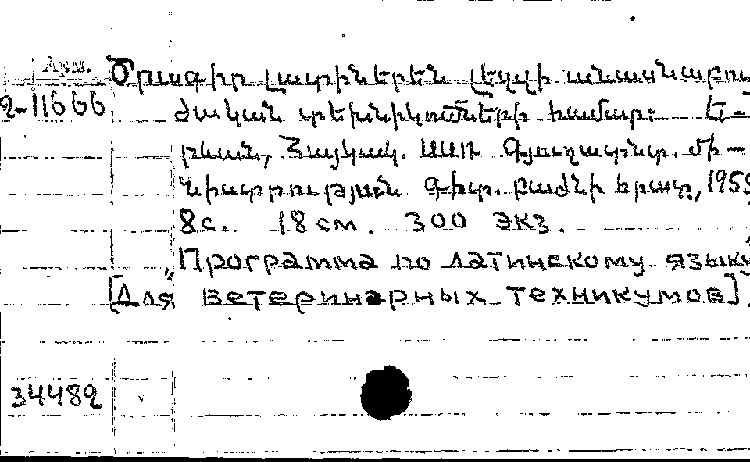 Арм. Ծրագիր լատիներեն լեզվի անասնաբու
2-11666 ժական տեխնիկումների համար: Ե-
րևան, Հայկակ. ՍՍՌ Գյուղատնտ. մի-
նիստրության Գիտ. բաժնի հրատ., 1955
8с. 18 см. 300 экз.
"Программа по латинскому языку
[для ветеринарных техникумов]"
34482